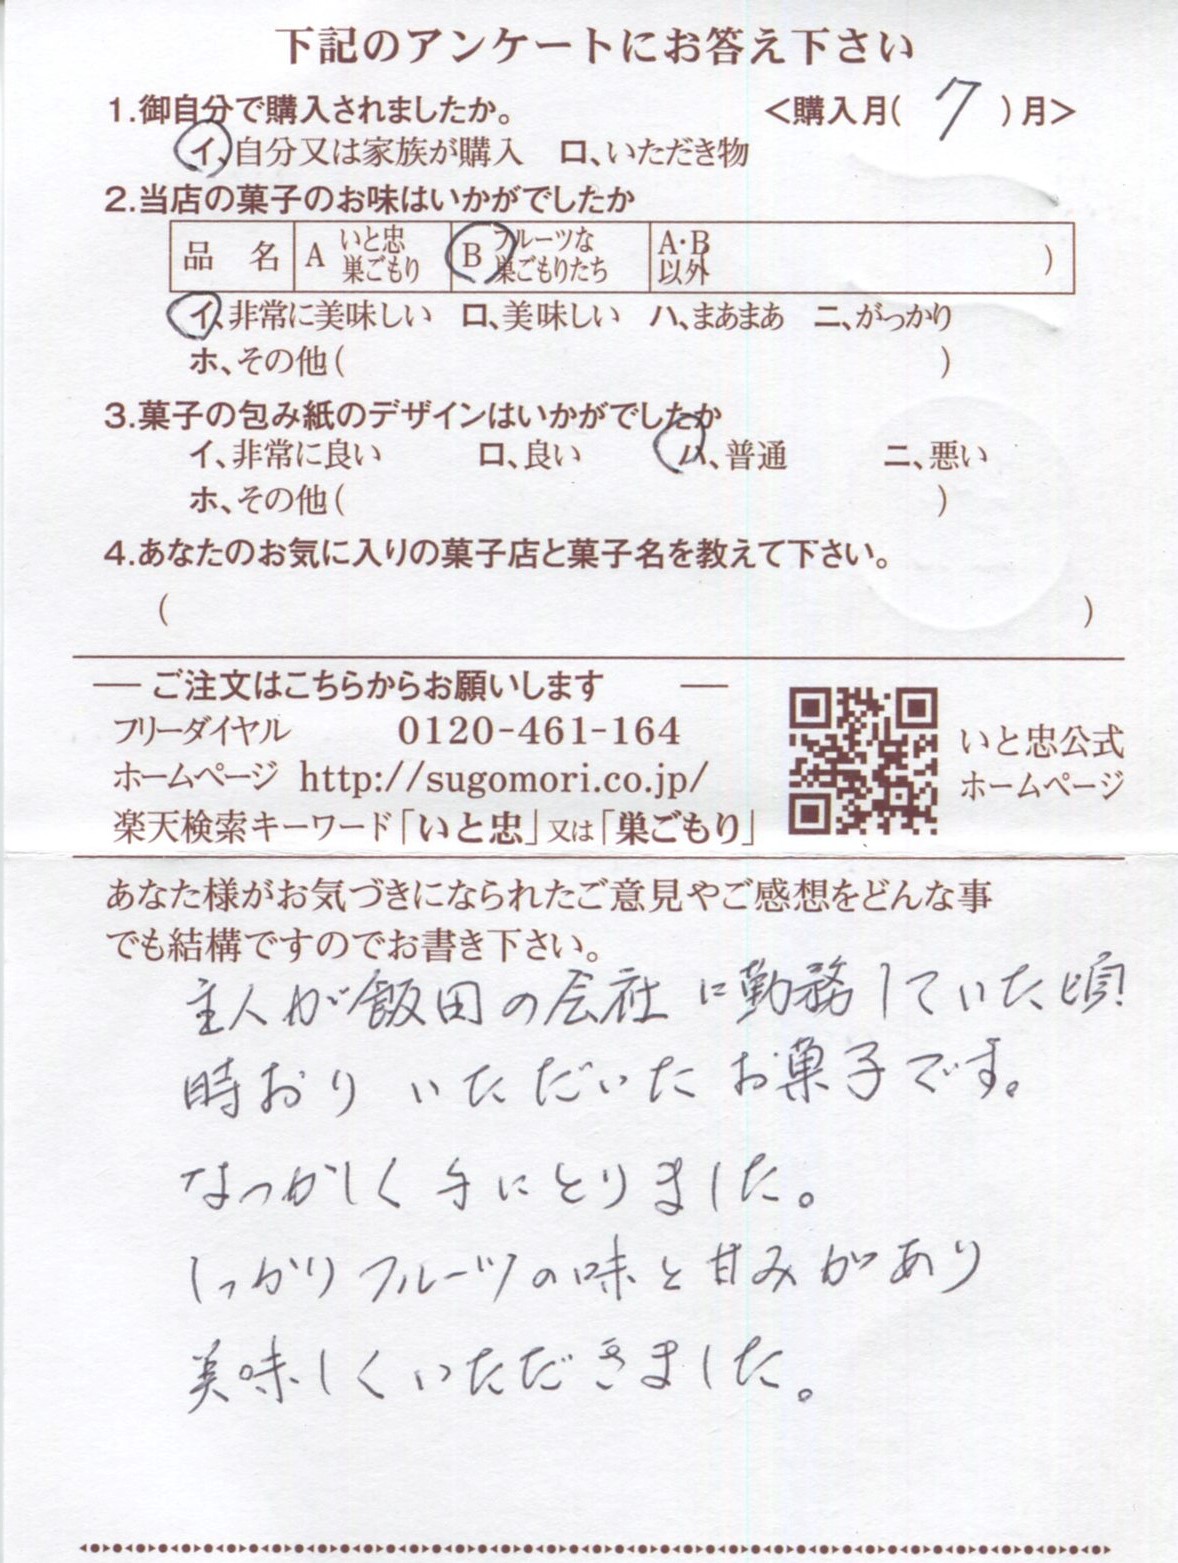 下記のアンケートにお答え下さい
1.御自分で購入されましたか。 <購入月( 7 )月>
イ、自分又は家族が購入 ロ、いただき物
2.当店の菓子のお味はいかがでしたか
品 名 A いと忠 巣ごもり B フルーツな 巣ごもりたち A・B 以外 )
イ、非常に美味しい ロ、美味しい ハ、まあまあ ニ、がっかり
ホ、その他( )
3.菓子の包み紙のデザインはいかがでしたか
イ、非常に良い ロ、良い ハ、普通 ニ、悪い
ホ、その他( )
4.あなたのお気に入りの菓子店と菓子名を教えて下さい。
( )
― ご注文はこちらからお願いします ―
フリーダイヤル 0120-461-164
ホームページ http://sugomori.co.jp/
楽天検索キーワード「いと忠」又は「巣ごもり」
いと忠公式
ホームページ
あなた様がお気づきになられたご意見やご感想をどんな事
でも結構ですのでお書き下さい。
主人が飯田の会社に勤務していた頃
時おり いただいた お菓子です。
なつかしく手にとりました。
しっかりフルーツの味と甘みがあり
美味しくいただきました。